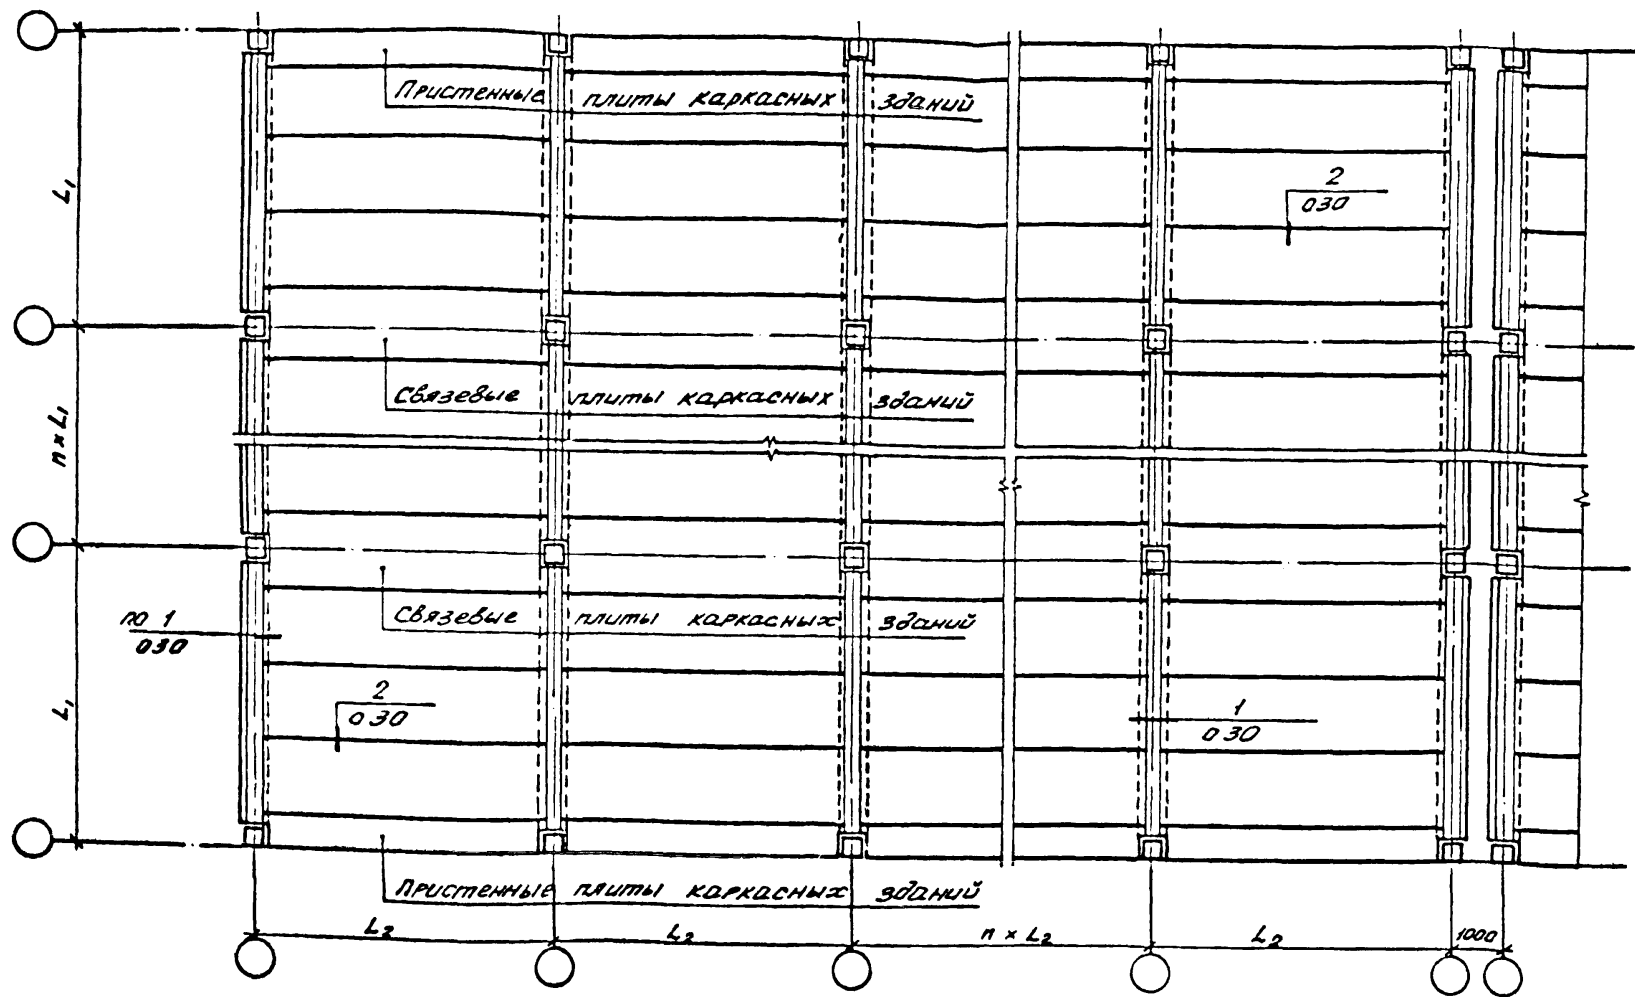 Пристенные плиты каркасных зданий
2
030
L₁
Связевые плиты каркасных зданий
n × L₁
по 1
030
Связевые плиты каркасных зданий
2
030
L₁
1
030
Пристенные плиты каркасных зданий
L₂
L₂
n × L₂
L₂
1000